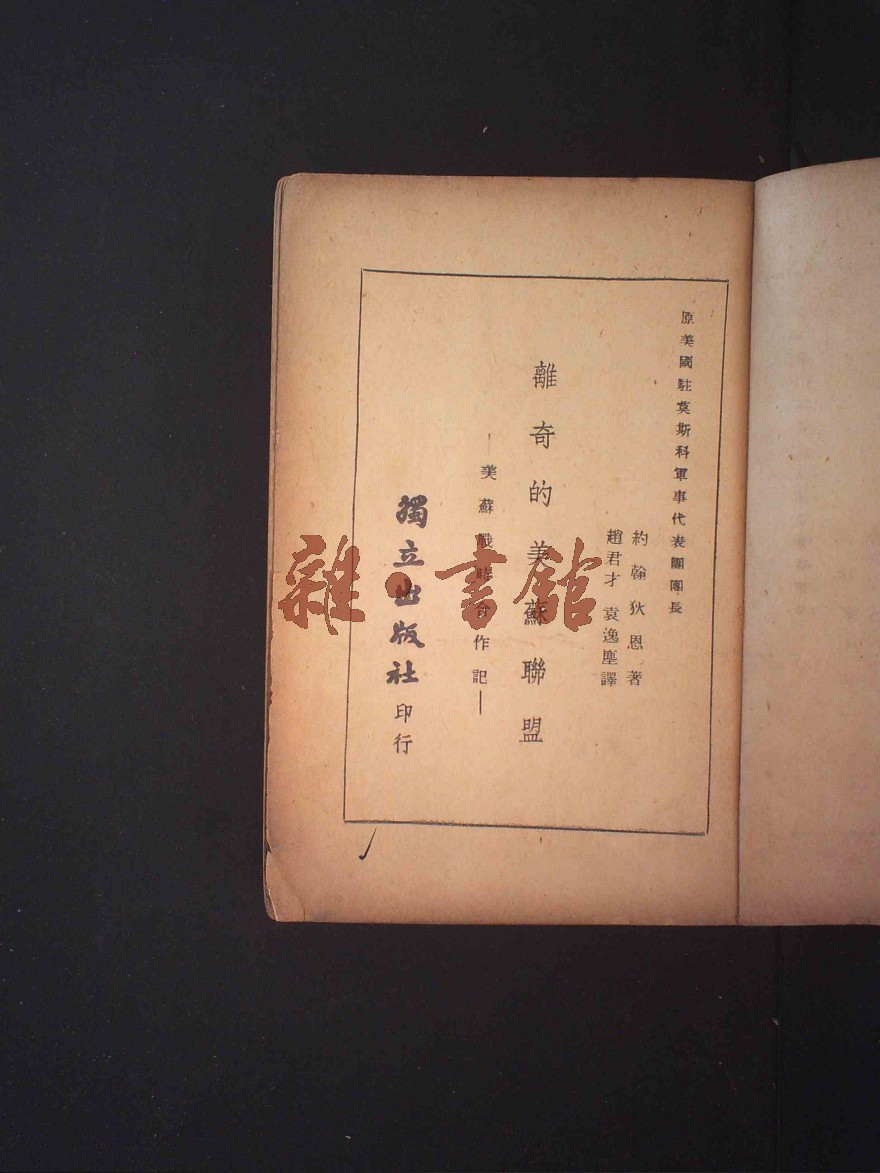 原美國駐莫斯科軍事代表團團長
約翰狄恩著
趙君才 袁逸塵譯
離奇的美蘇聯盟
—美蘇戰時合作記—
獨立出版社印行
雜·書館